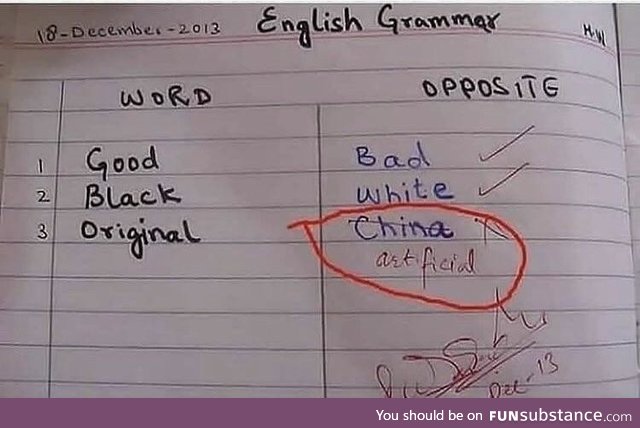 18-December-2013 English Grammar H.W
WORD OPPOSITE
1 Good Bad
2 Black White
3 Original China
artificial
Dec-13
You should be on FUNsubstance.com